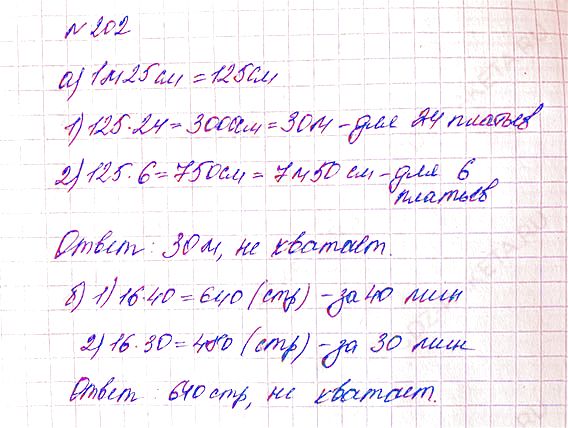 № 202
а) 1м25см = 125см
1) 125·24 = 3000см = 30м - для 24 платьев
2) 125·6 = 750см = 7м50см - для 6
платьев
Ответ: 30м, не хватает.
б) 1) 16·40 = 640 (стр) - за 40 мин
2) 16·30 = 480 (стр) - за 30 мин
Ответ: 640 стр, не хватает.